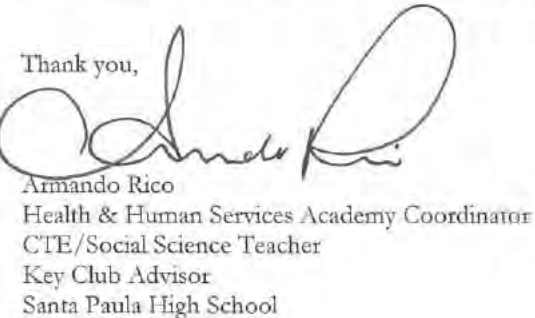 Thank you,
Armando Rico
Armando Rico
Health & Human Services Academy Coordinator
CTE/Social Science Teacher
Key Club Advisor
Santa Paula High School